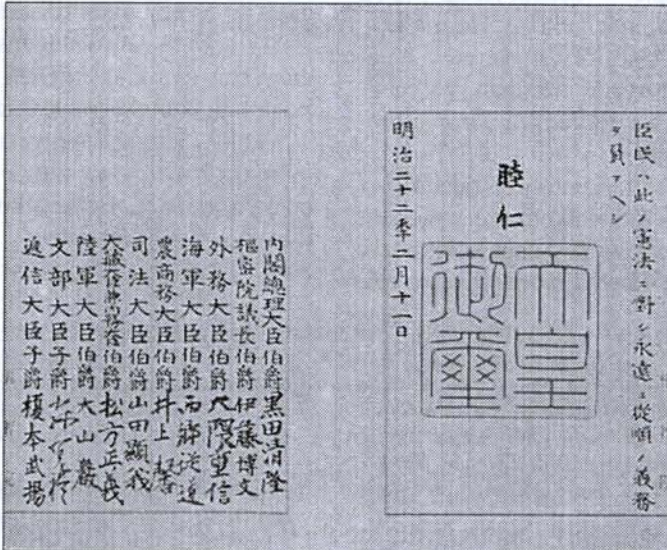 臣民ハ此ノ憲法ニ對シ永遠ニ從順ノ義務
ヲ負フヘシ
睦仁
天皇御璽
明治二十二年二月十一日
內閣總理大臣伯爵黑田清隆
樞密院議長伯爵伊藤博文
外務大臣伯爵大隈重信
海軍大臣伯爵西鄉從道
農商務大臣伯爵井上馨
司法大臣伯爵山田顯義
大藏大臣兼內務大臣伯爵松方正義
陸軍大臣伯爵大山巖
文部大臣子爵
遞信大臣子爵榎本武揚